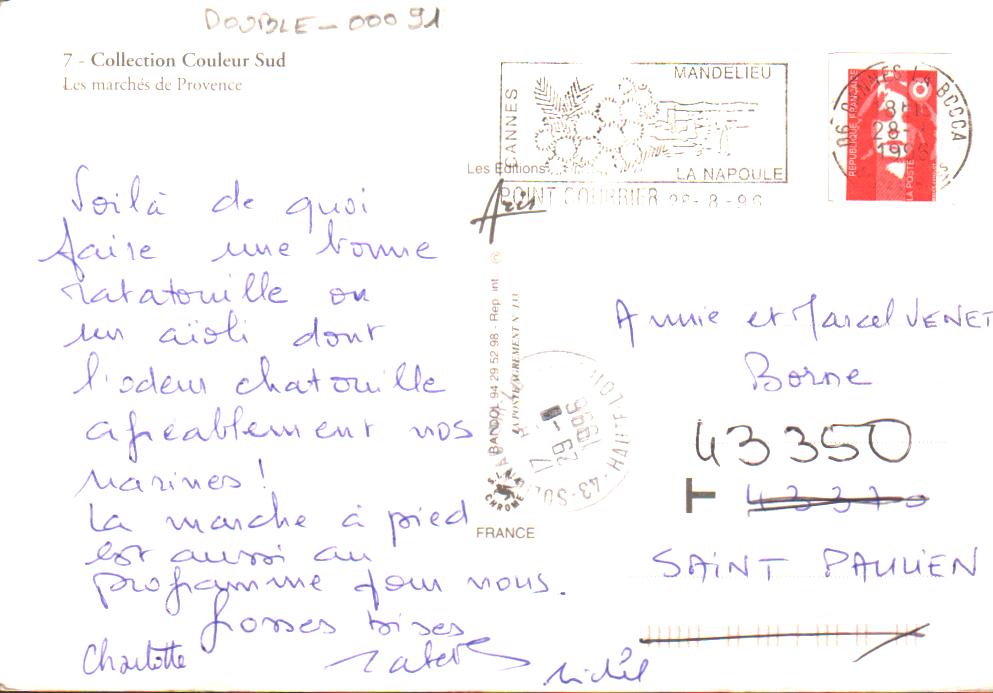 DOUBLE - 000 91
7 - Collection Couleur Sud
Les marchés de Provence
CANNES
MANDELIEU
LA NAPOULE
POINT COURRIER 28-8-96
06 CANNES LA BOCCA
28-
1996
REPUBLIQUE FRANÇAISE
LA POSTE
Les Editions
Aris
Voilà de quoi
faire une bonne
ratatouille ou
un aïoli dont
l'odeur chatouille
agréablement nos
narines !
La marche à pied
est aussi au
programme pour nous.
Grosses bises
Charlotte
Michèl
© BANDOL 94 29 52 98 - Rep. int
FRANCE
17
29 -8
1996
43 - HAUTE-LOIRE
Annie et Marcel VENET
Borne
43350
T 43370
SAINT PAULIEN